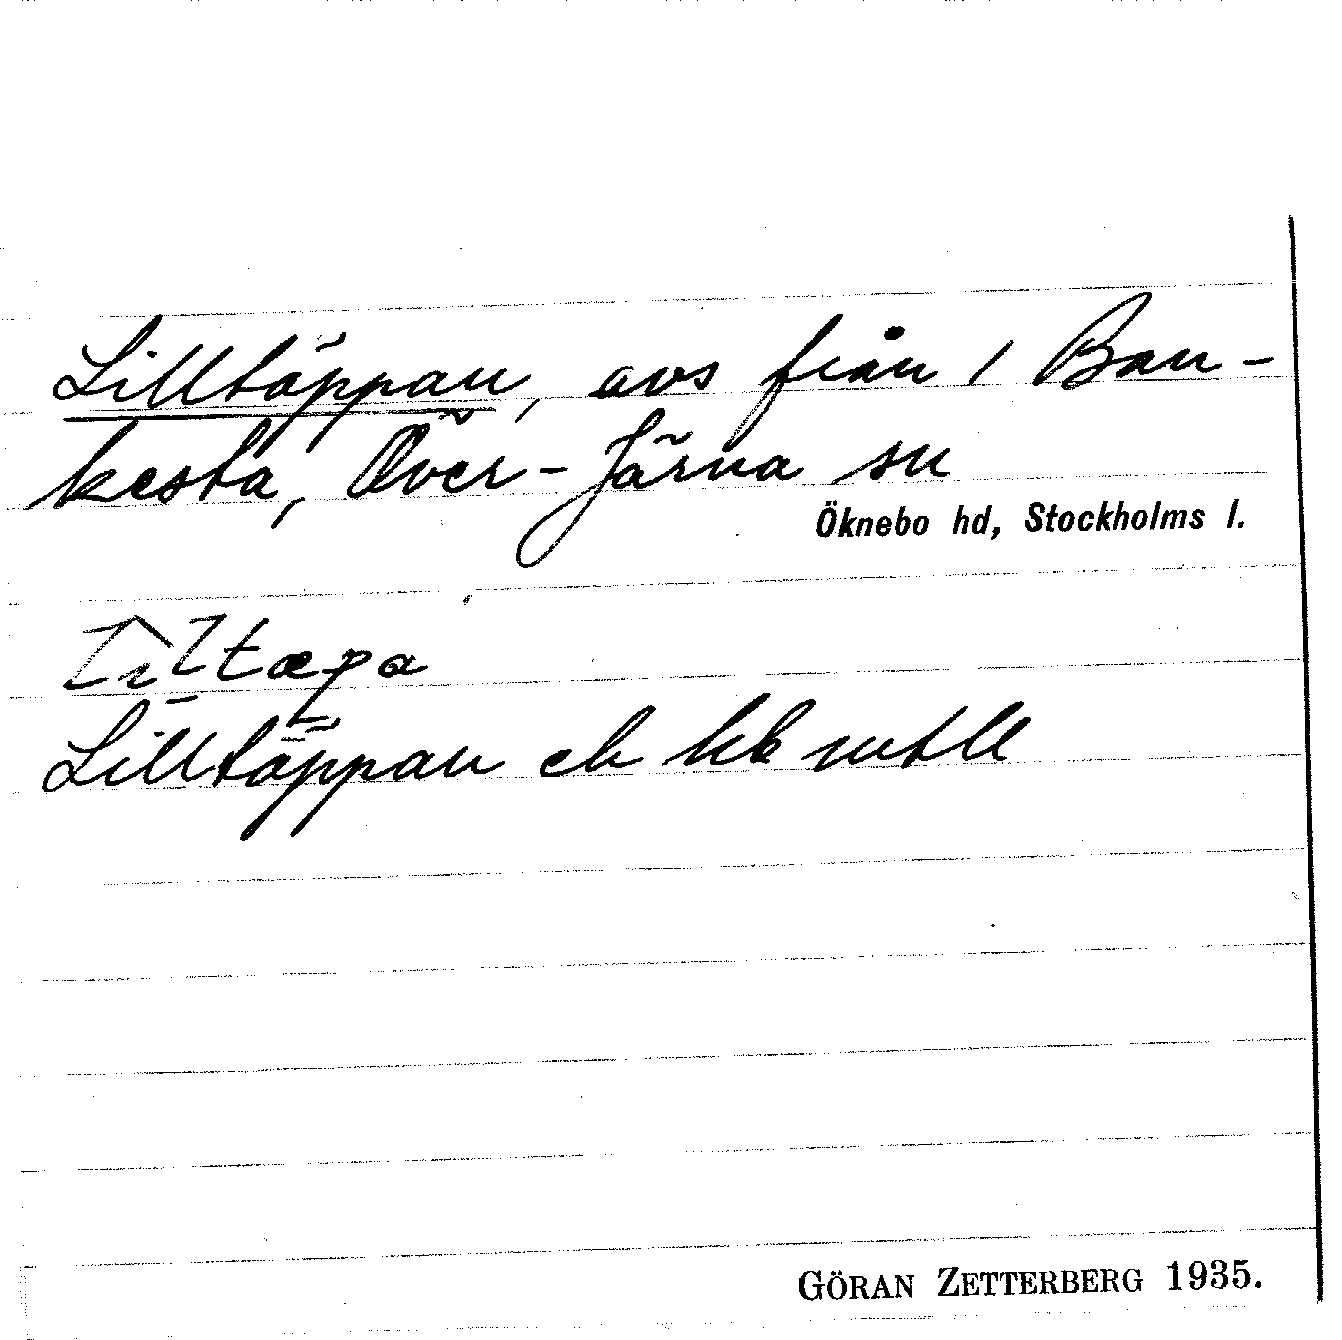 Lilltäppan, avs från 1 Ban-
kesta, Över-Järna sn
Öknebo hd, Stockholms l.
Lilltäppan ek
GÖRAN ZETTERBERG 1935.